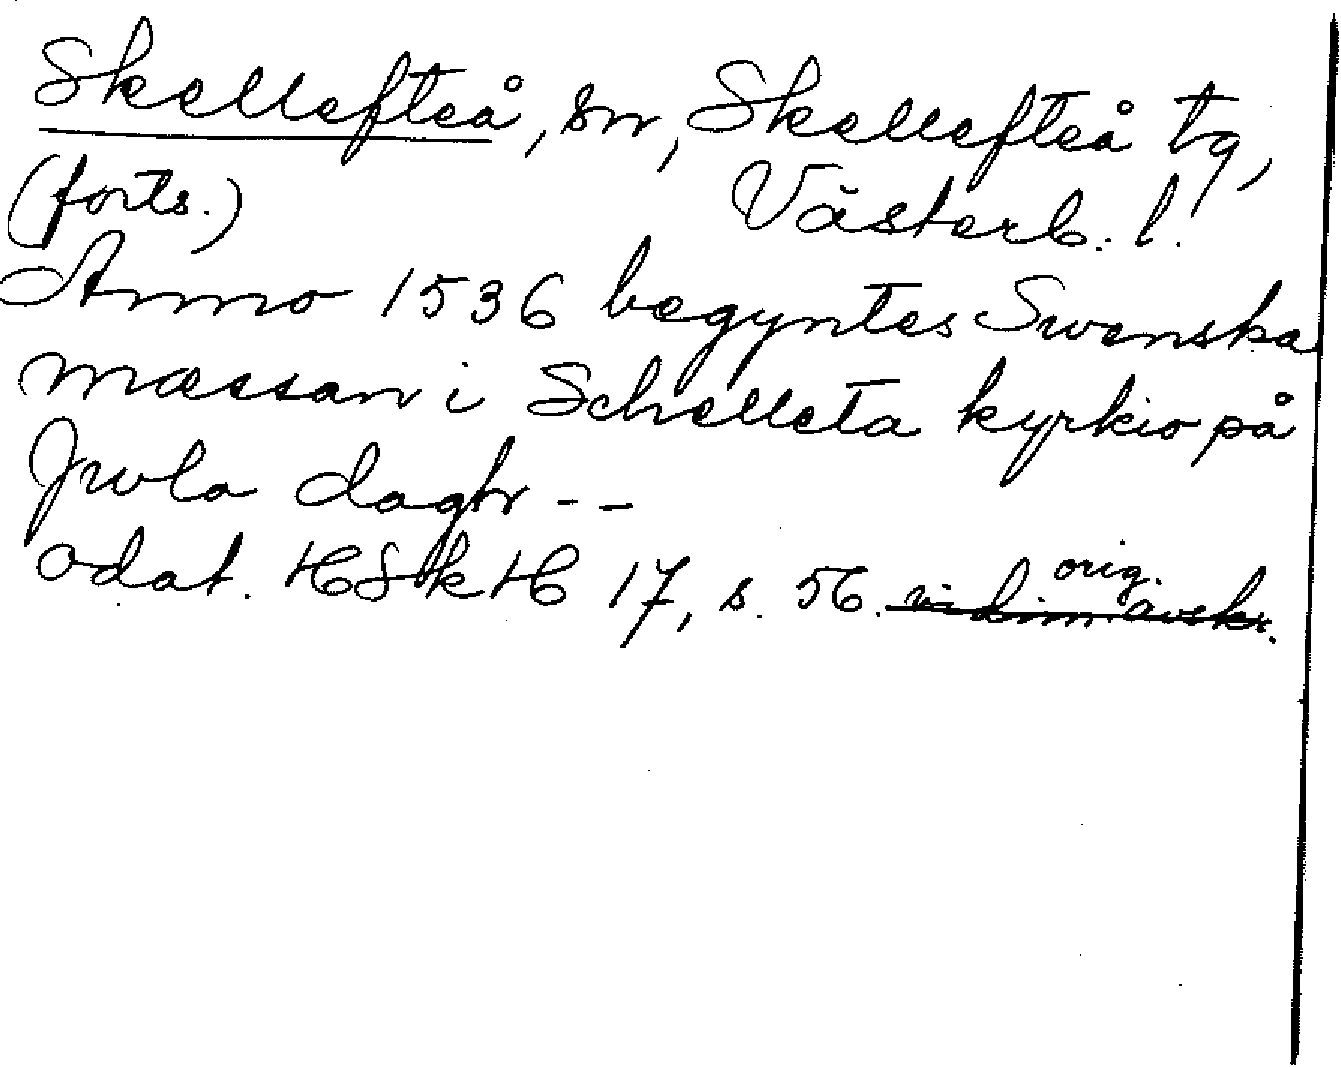 Skellefteå, sn, Skellefteå tg,
(forts.) Västerb. l.
Anno 1536 begyntes Swenska
mæssan i Schelleta kyrkio på
Jwla daghr --
odat. HSkH 17, s. 56. orig.
vidim. avskr.